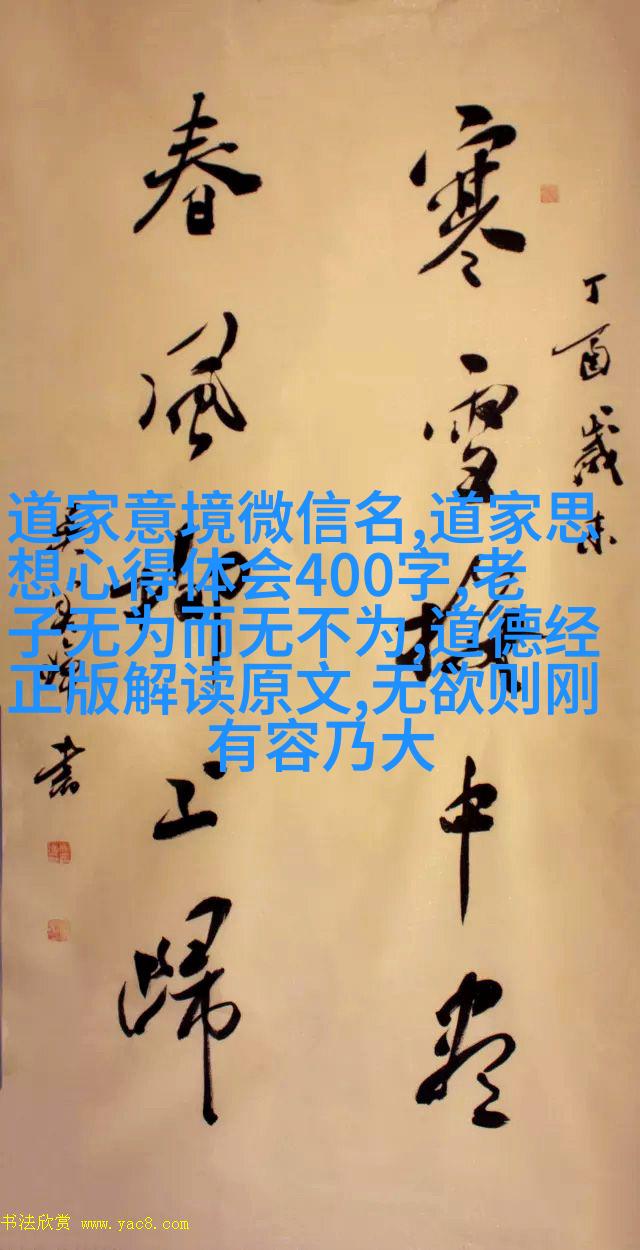 丁酉岁末
寒雪梅中尽
春風柳上歸
書
道家意境微信名,道家思
想心得体会400字,老
子无为而无不为,道德经
正版解读原文,无欲则刚
有容乃大
书法欣赏 www.yac8.com